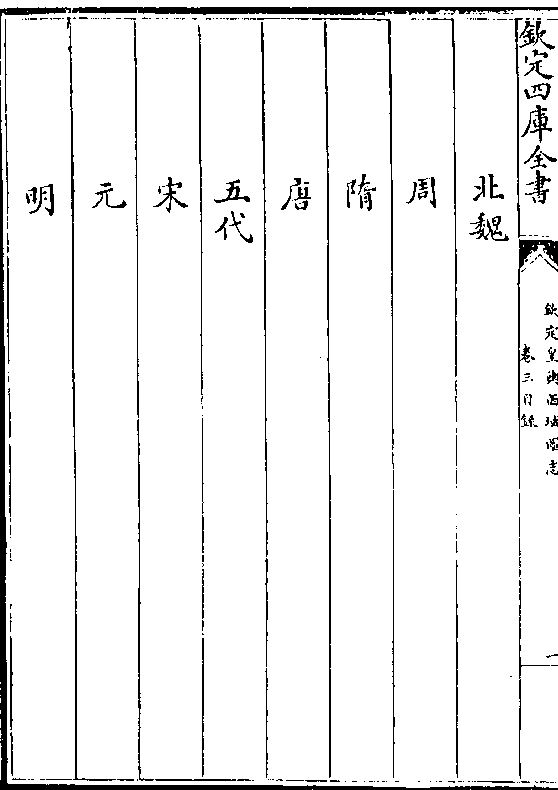 欽定四庫全書
欽定皇輿西域圖志
卷三目録
一
北魏
周
隋
唐
五代
宋
元
明